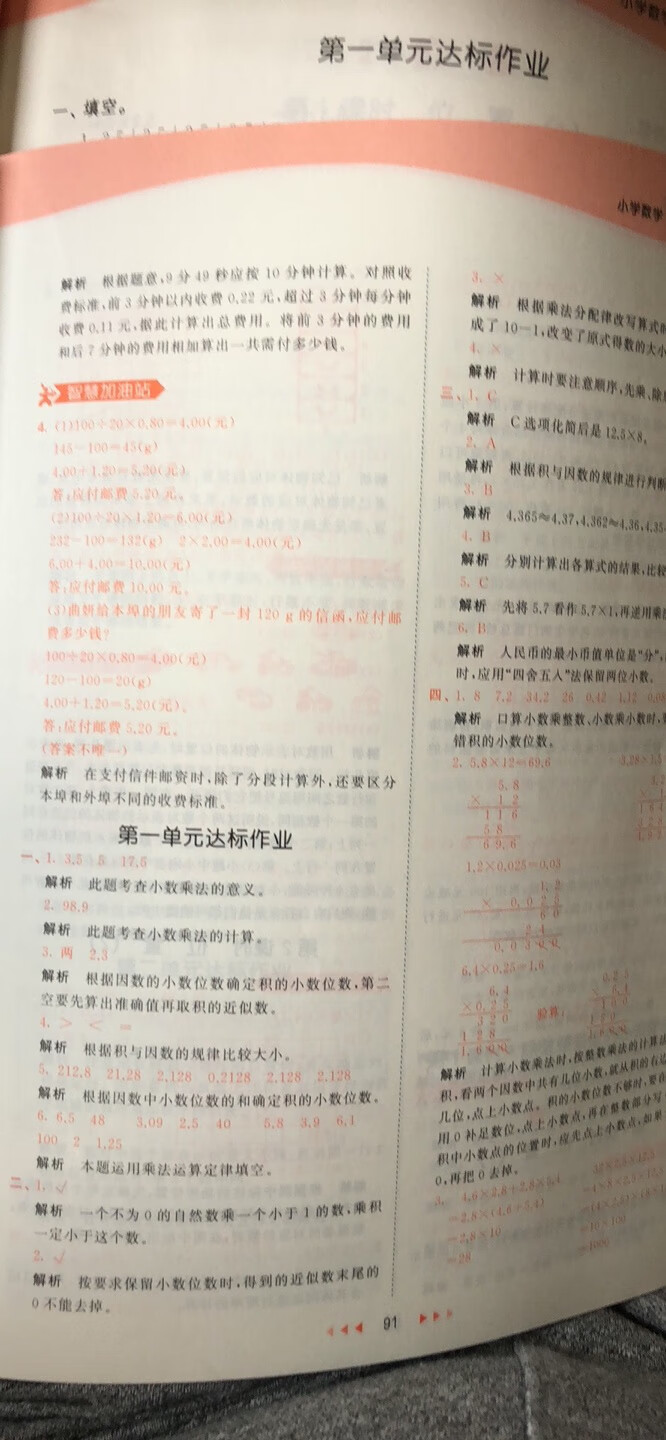 小学数学
第一单元达标作业
一、填空。
小学数学
解析 根据题意,9分49秒应按10分钟计算。对照收
费标准,前3分钟以内收费0.22元,超过3分钟每分钟
收费0.11元,据此计算出总费用。将前3分钟的费用
和后7分钟的费用相加算出一共需付多少钱。
智慧加油站
4. (1)100÷20×0.80=4.00(元)
145-100=45(g)
4.00+1.20=5.20(元)
答:应付邮费5.20元。
(2)100÷20×1.20=6.00(元)
232-100=132(g) 2×2.00=4.00(元)
6.00+4.00=10.00(元)
答:应付邮费10.00元。
(3)曲妍给本埠的朋友寄了一封120 g的信函,应付邮
费多少钱?
100÷20×0.80=4.00(元)
120-100=20(g)
4.00+1.20=5.20(元)。
答:应付邮费5.20元。
(答案不唯一)
解析 在支付信件邮资时,除了分段计算外,还要区分
本埠和外埠不同的收费标准。
第一单元达标作业
一、1. 3.5 5 17.5
解析 此题考查小数乘法的意义。
2. 98.9
解析 此题考查小数乘法的计算。
3. 两 2.3
解析 根据因数的小数位数确定积的小数位数,第二
空要先算出准确值再取积的近似数。
4. > < =
解析 根据积与因数的规律比较大小。
5. 212.8 21.28 2.128 0.2128 2.128 2.128
解析 根据因数中小数位数的和确定积的小数位数。
6. 6.5 48 3.09 2.5 40 5.8 3.9 6.1
100 2 1.25
解析 本题运用乘法运算定律填空。
二、1. √
解析 一个不为0的自然数乘一个小于1的数,乘积
一定小于这个数。
2. √
解析 按要求保留小数位数时,得到的近似数末尾的
0不能去掉。
3. ×
解析 根据乘法分配律改写算式时
成了10-1,改变了原式得数的大小
4. ×
解析 计算时要注意顺序,先乘、除
三、1. C
解析 C选项化简后是12.5×8,
2. A
解析 根据积与因数的规律进行判断
3. B
解析 4.365≈4.37,4.362≈4.36,4.35
4. B
解析 分别计算出各算式的结果,比较
5. C
解析 先将5.7看作5.7×1,再逆用乘法
6. B
解析 人民币的最小币值单位是“分”,
时,应用“四舍五入”法保留两位小数。
四、1. 8 7.2 34.2 26 0.42 1.12 0.03
解析 口算小数乘整数、小数乘小数时,
错积的小数位数。
2. 5.8×12=69.6
5.8
× 1 2
1 1 6
5 8
6 9.6
1.2×0.025=0.03
1.2
× 0.0 2 5
6 0
2 4
0.0 3 0 0
6.4×0.25=1.6
6.4
×0.2 5
3 2 0
1 2 8
1.6 0 0
验算:
0.2 5
× 6.4
1 0 0
1 5 0
1.6 0 0
解析 计算小数乘法时,按整数乘法的计算法
积,看两个因数中共有几位小数,就从积的右边
几位,点上小数点。积的小数位数不够时,要在
用0补足数位,点上小数点,再在整数部分写
积中小数点的位置时,应先点上小数点,如果
0,再把0去掉。
3. 4.6×2.8+2.8×5.4
=2.8×(4.6+5.4)
=2.8×10
=28
=10×100
=1000
91